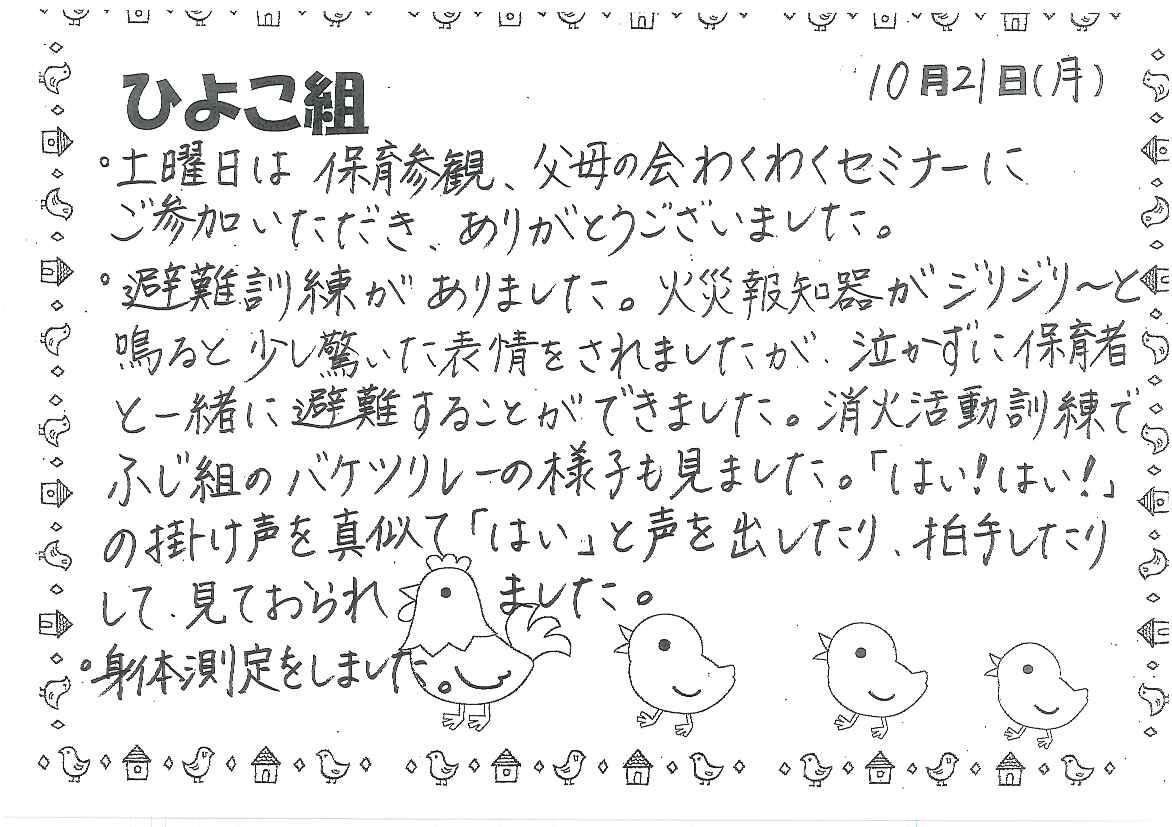 ひよこ組
10月21日(月)
°土曜日は 保育参観、父母の会わくわくセミナーに
ご参加いただき、ありがとうございました。
°避難訓練がありました。火災報知器がジリジリ～と
鳴ると少し驚いた表情をされましたが、泣かずに保育者
と一緒に避難することができました。消火活動訓練で
ふじ組のバケツリレーの様子も見ました。「はい!はい!」
の掛け声を真似て「はい」と声を出したり、拍手したり
して、見ておられました。
°身体測定をしました。